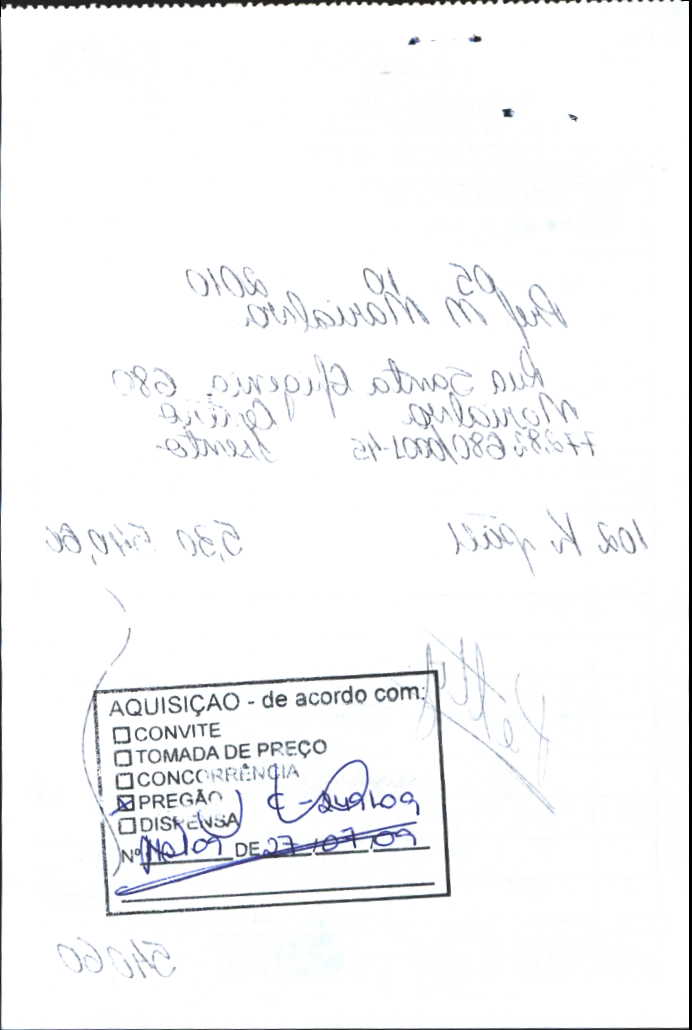 05 10 2010
Pref M Marialva
Rua Santa Efigenia, 680
Marialva
Isento
102 K. pães 5,30 540,60
AQUISIÇAO - de acordo com:
☐ CONVITE
☐ TOMADA DE PREÇO
☐ CONCORRÊNCIA
☒ PREGÃO C-249/09
☐ DISPENSA
Nº 110/09 DE 27/07/09
540,60